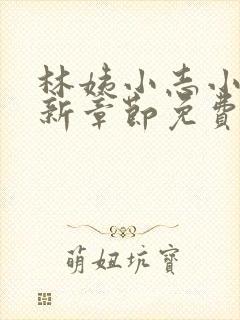 林姨小志小
新章節免費
萌妞坑寶